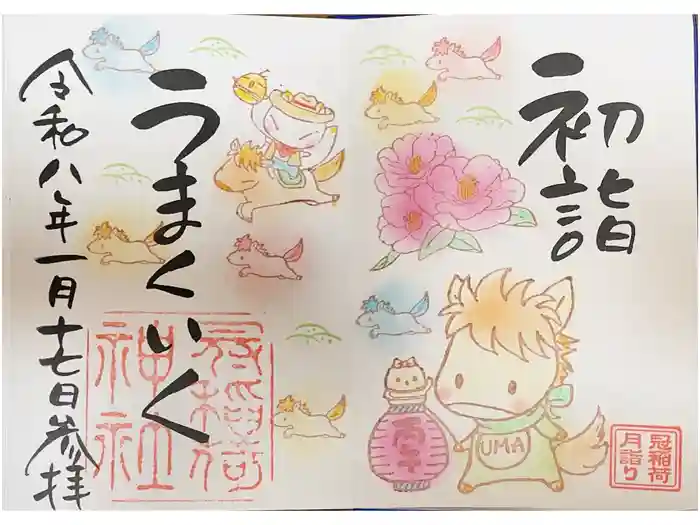 初詣
冠稲荷
月詣り
UMA
うまくいく
冠稲荷
神社
令和八年一月十七日参拝